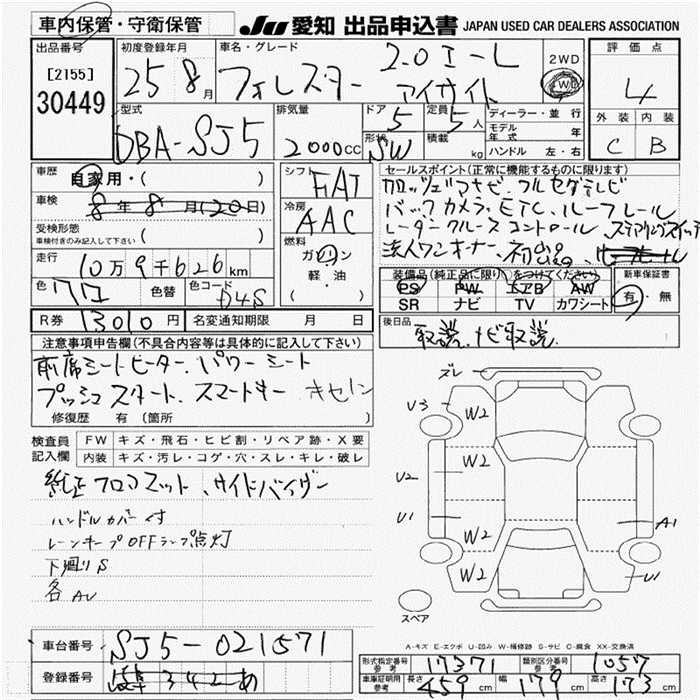 車内保管・守衛保管
JU 愛知 出品申込書 JAPAN USED CAR DEALERS ASSOCIATION
出品番号
[2155]
30449
初度登録年月
25 8月
車名・グレード
フォレスター 2.0 i-L アイサイト
2WD
4WD
評価点
4
外装 内装
C B
型式
DBA-SJ5
排気量
2000cc
ドア
5
形状
SW
定員
5人
積載
kg
ディーラー・並行
モデル年式 年
ハンドル 左・右
車歴
自家用・( )
車検
8年8月(20日)
受検形態
車検付きのみ記入して下さい ( )
走行
10万9千626km
色
クロ
色替
色コード
D4S
シフト
FAT
冷房
AAC
燃料
ガソリン
軽・油
( )
セールスポイント(正常に機能するものに限ります)
クロッツェリアナビ、フルセグテレビ
バックカメラ、ETC、ルーフレール
レーダークルーズコントロール、ステアリングスイッチ
法人ワンオーナー、
装備品(純正品に限り)をつけてください
PS PW エアB AW
SR ナビ TV カワシート
新車保証書
有・無
R券 13010円 名変通知期限 月 日
後日品
取説、ナビ取説
注意事項申告欄(不具合内容等は具体的に記入して下さい)
前席シートヒーター、パワーシート
プッシュスタート、スマートキー キセノン
修復歴 有(箇所 )
検査員記入欄
FW キズ・飛石・ヒビ割・リペア跡・X要
内装 キズ・汚レ・コゲ・穴・スレ・キレ・破レ
純正フロアマット、サイドバイザー
ハンドルカバー付
レーンキープOFFランプ点灯
下廻りS
各AU
スレ
U3 W2
W2
U2
U1
W2
W2
A1
U1
スペア
A-キズ E-エクボ U-凹み W-補修跡 S-サビ C-腐食 XX-交換済
車台番号
SJ5-021571
登録番号
岐阜342 あ
形式指定番号 参考 17371 類別区分番号 参考 1057
車庫証明用 参考 長さ 459cm 幅 179cm 高さ 173cm